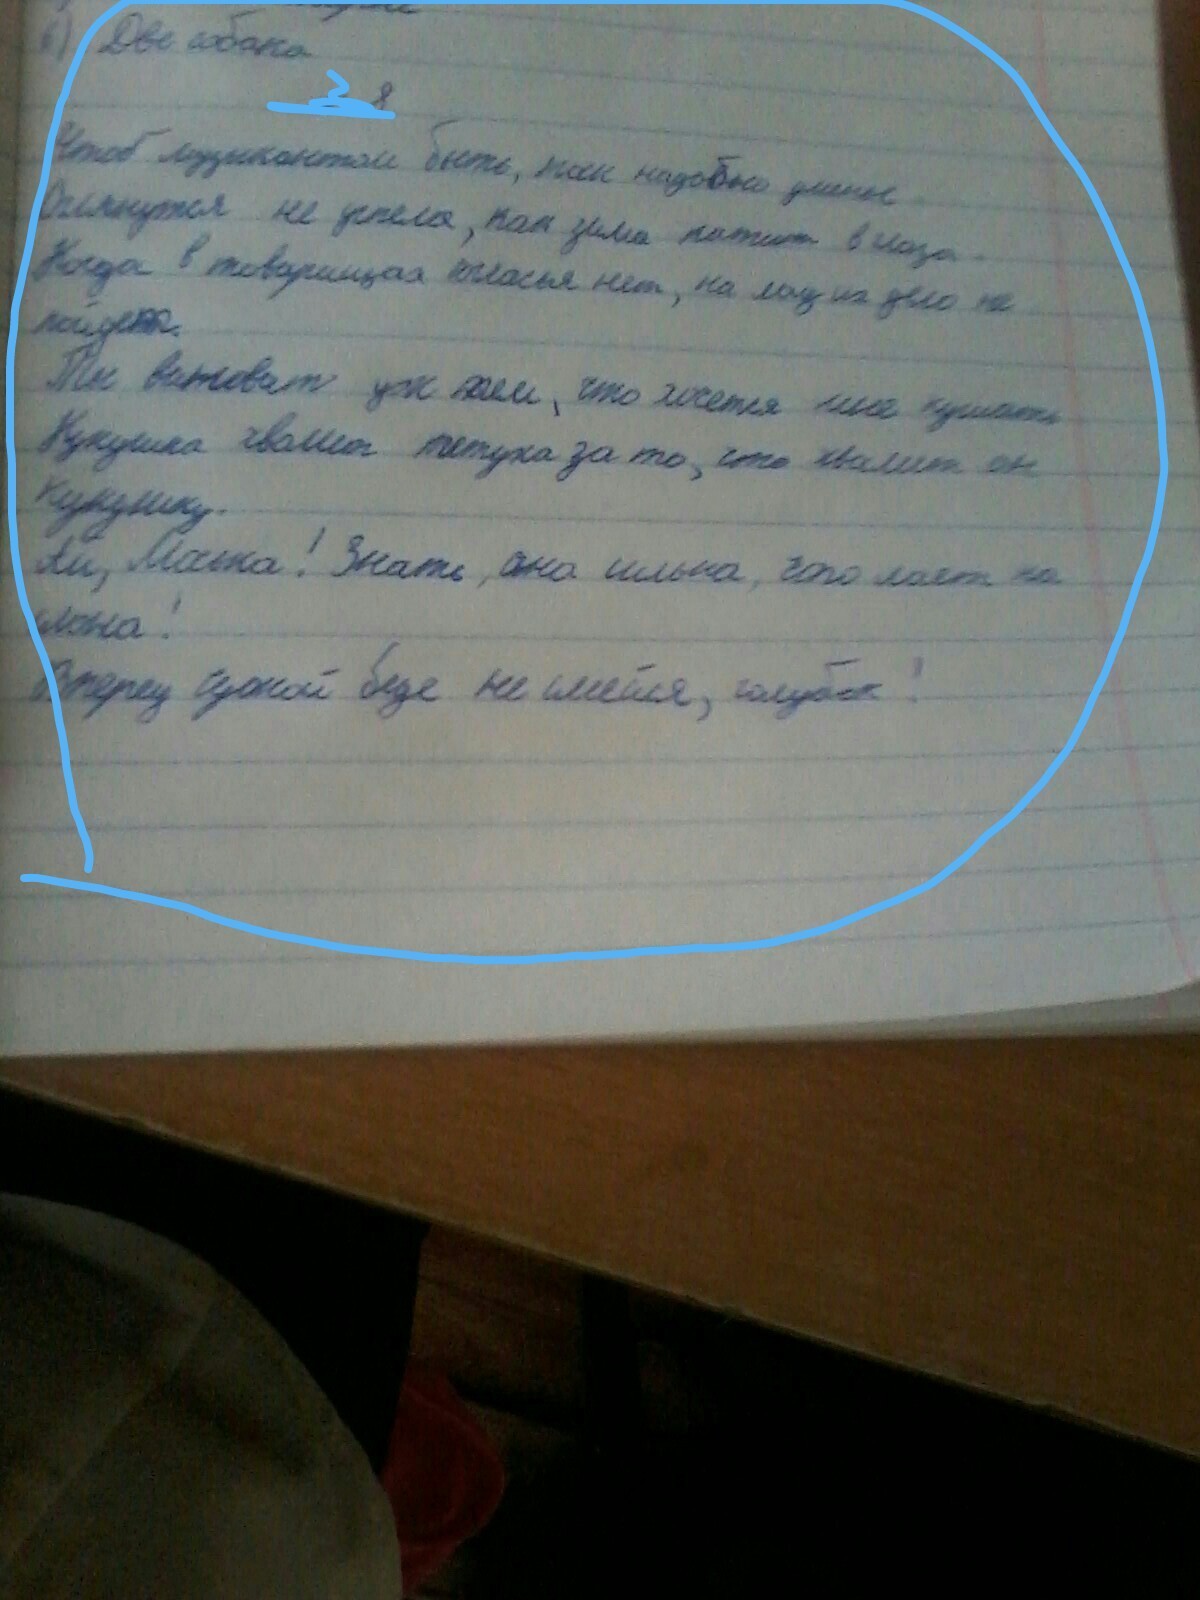 б) Две собаки
8
Чтоб музыкантом быть, так надобно уменье
Оглянутся не успела, как зима катит в глаза.
Когда в товарищах согласья нет, на лад их дело не
пойдет.
Ты виноват уж тем, что хочется мне кушать
Кукушка хвалит петуха за то, что хвалит он
кукушку.
Ай, Моська! Знать, она сильна, что лает на
слона!
Вперед чужой беде не смейся, голубок!